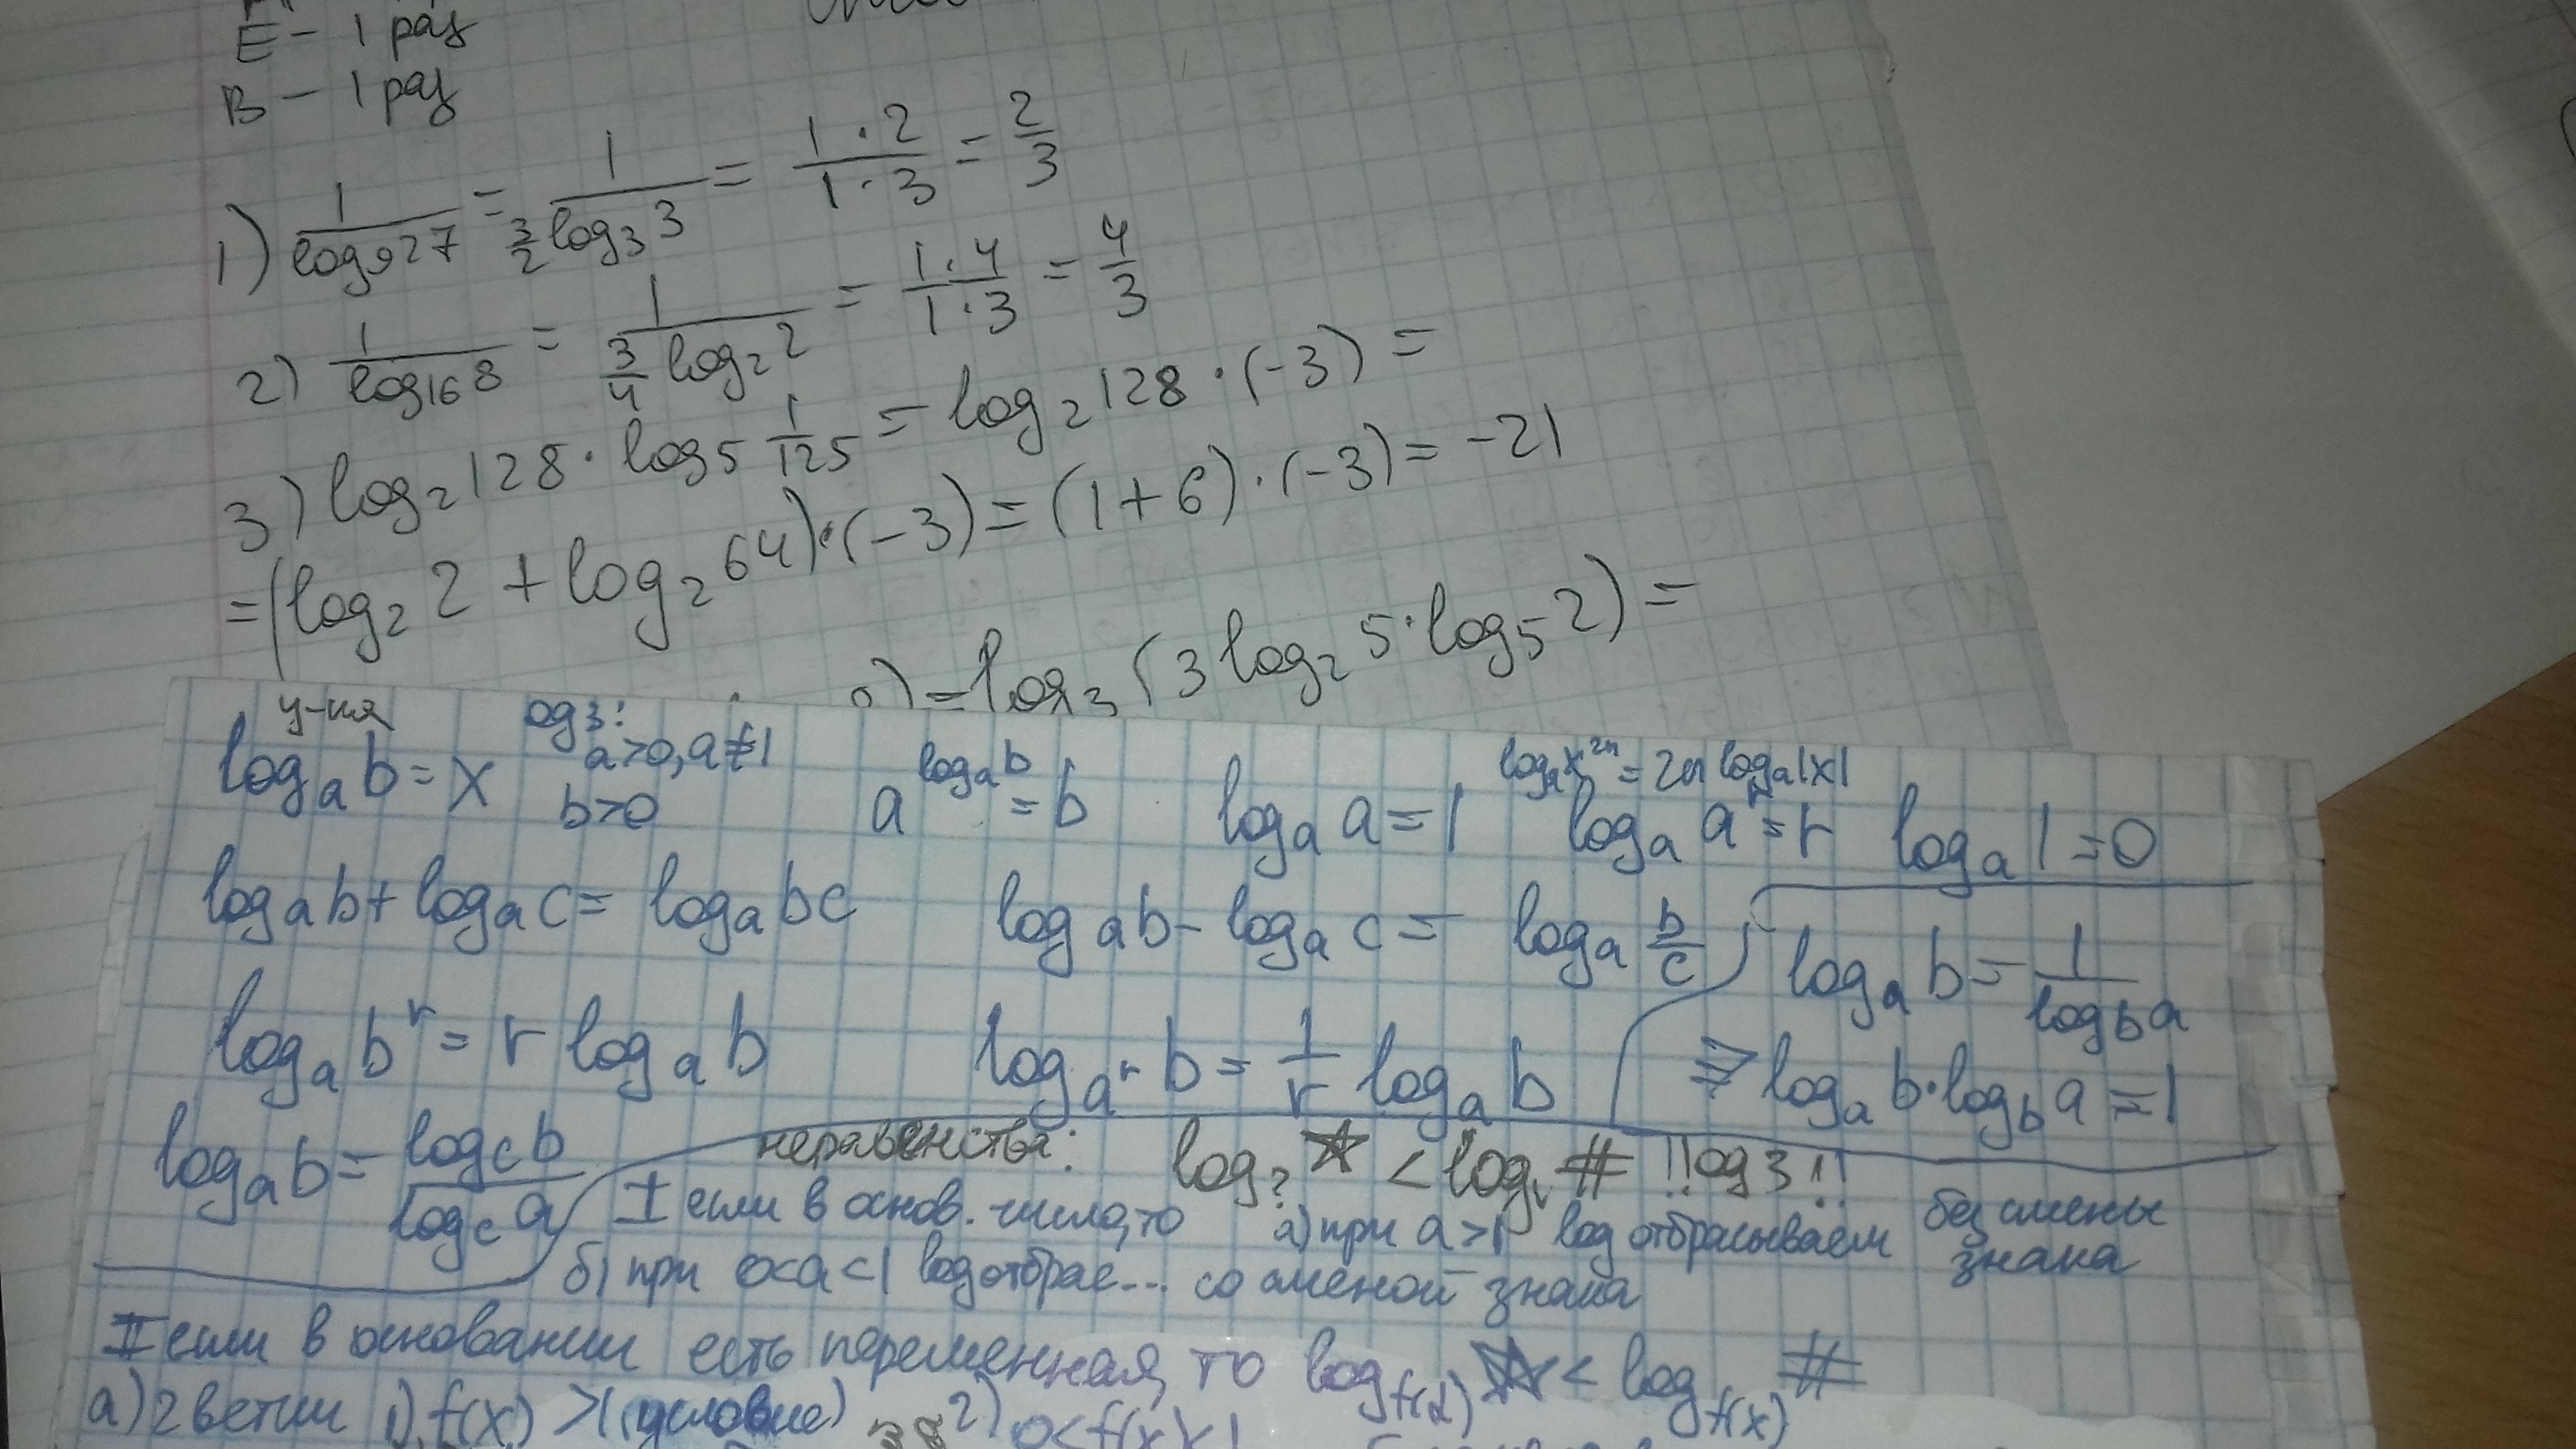 E - 1 раз
B - 1 раз
1) 1/log₉27 = 1/(3/2 log₃3) = (1·2)/(1·3) = 2/3
2) 1/log₁₆8 = 1/(3/4 log₂2) = (1·4)/(1·3) = 4/3
3) log₂128 · log₅ 1/125 = log₂128 · (-3) =
= (log₂2 + log₂64) · (-3) = (1+6) · (-3) = -21
) = log₃(3log₂5 · log₅2) =
у-ия
logₐb = x ОДЗ: a>0, a≠1 b>0 a^(logₐb) = b logₐa = 1 logₐx²ⁿ = 2n logₐ|x| logₐaʳ = r logₐ1 = 0
logₐb + logₐc = logₐbc logₐb - logₐc = logₐ b/c logₐb = 1/log_b a
logₐbʳ = r logₐb log_(aʳ) b = 1/r logₐb ⇒ logₐb · log_b a = 1
logₐb = log_c b/log_c a
неравенства: log? ☆ < log # !!ОДЗ!!
I если в основ. число, то а) при a>1 log отбрасываем без смены знака
б) при 0<a<1 log отбрас... со сменой знака
II если в основании есть переменная, то log_f(x) ☆ < log_f(x) #
а) 2 ветки 1) f(x) >1 (условие) 2) 0<f(x)<1